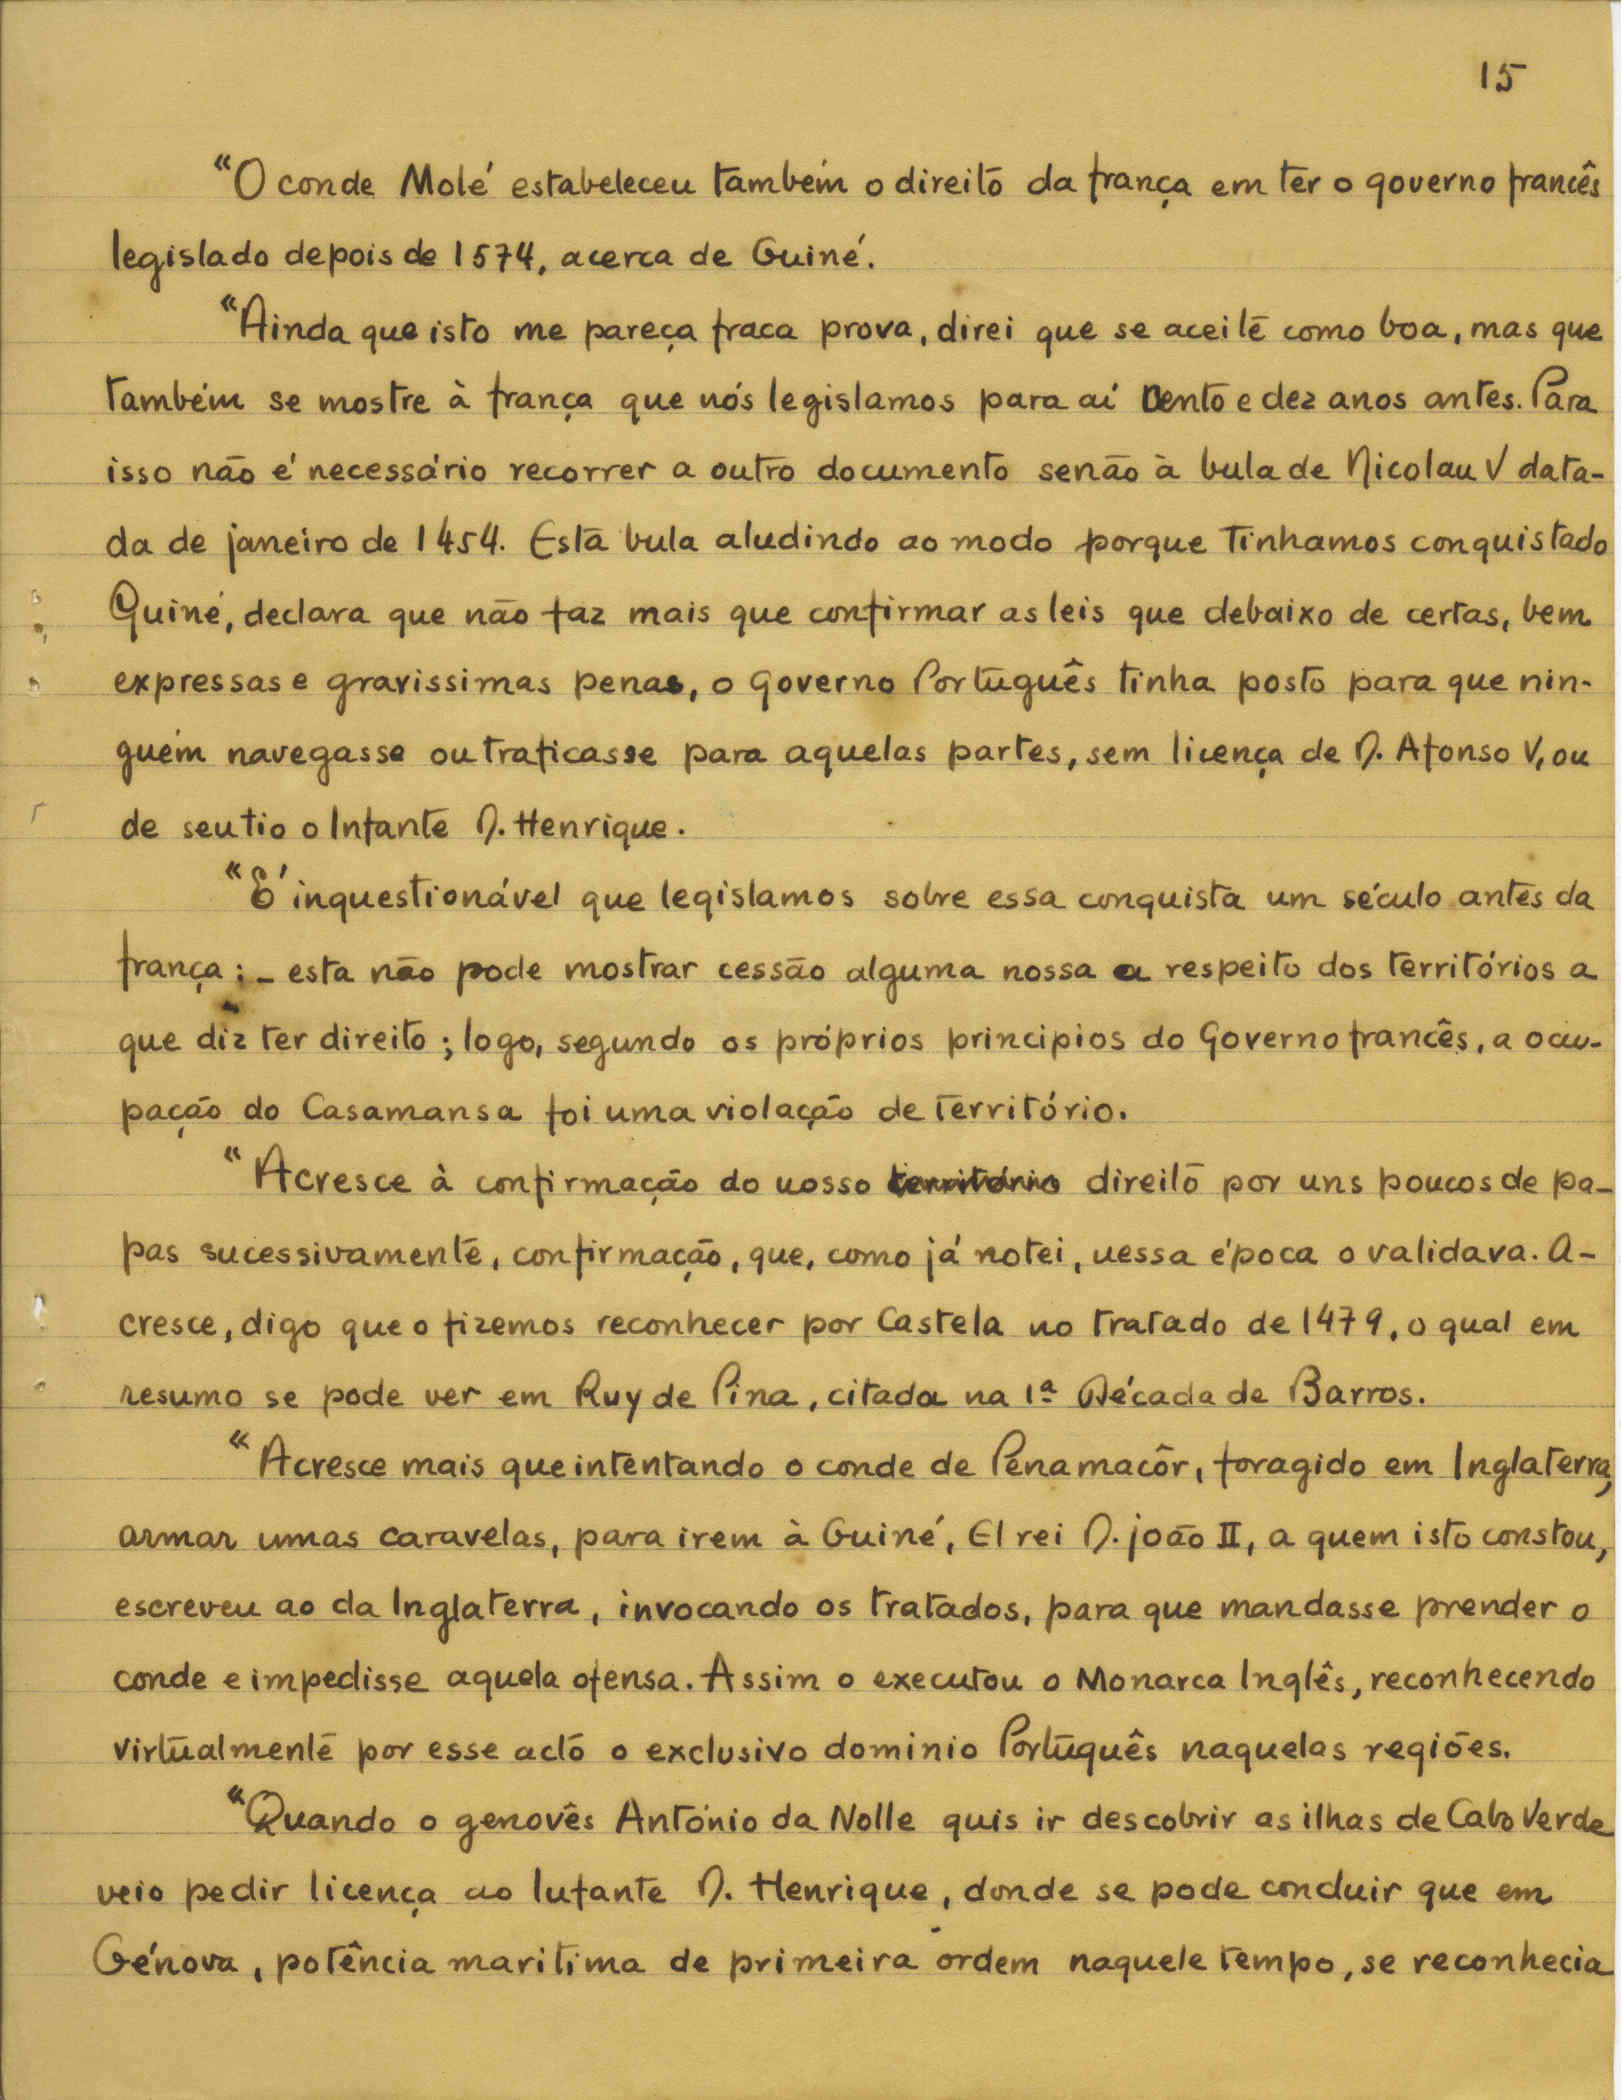 15
"O conde Molé estabeleceu também o direito da frança em ter o governo francês
legislado depois de 1574, acerca de Guiné.
"Ainda que isto me pareça fraca prova, direi que se aceite como boa, mas que
também se mostre à frança que nós legislamos para aí cento e dez anos antes. Para
isso não é necessário recorrer a outro documento senão à bula de Nicolau V data-
da de janeiro de 1454. Esta bula aludindo ao modo porque tinhamos conquistado
Guiné, declara que não faz mais que confirmar as leis que debaixo de certas, bem
expressas e gravissimas penas, o Governo Português tinha posto para que nin-
guém navegasse ou traficasse para aquelas partes, sem licença de D. Afonso V, ou
de seu tio o Infante D. Henrique.
"É inquestionável que legislamos sobre essa conquista um século antes da
frança: - esta não pode mostrar cessão alguma nossa a respeito dos territórios a
que diz ter direito; logo, segundo os próprios principios do Governo francês, a ocu-
pação do Casamansa foi uma violação de território.
"Acresce à confirmação do nosso território direito por uns poucos de pa-
pas sucessivamente, confirmação, que, como já notei, nessa época o validava. A-
cresce, digo que o fizemos reconhecer por Castela no tratado de 1479, o qual em
resumo se pode ver em Ruy de Pina, citada na 1ª Década de Barros.
"Acresce mais que intentando o conde de Penamacôr, foragido em Inglaterra,
armar umas caravelas, para irem à Guiné, El rei D. joão II, a quem isto constou,
escreveu ao da Inglaterra, invocando os tratados, para que mandasse prender o
conde e impedisse aquela ofensa. Assim o executou o Monarca Inglês, reconhecendo
virtualmente por esse acto o exclusivo dominio Português naquelas regiões.
"Quando o genovês António da Nolle quis ir descobrir as ilhas de Cabo Verde
veio pedir licença ao Infante D. Henrique, donde se pode concluir que em
Génova, potência maritima de primeira ordem naquele tempo, se reconhecia